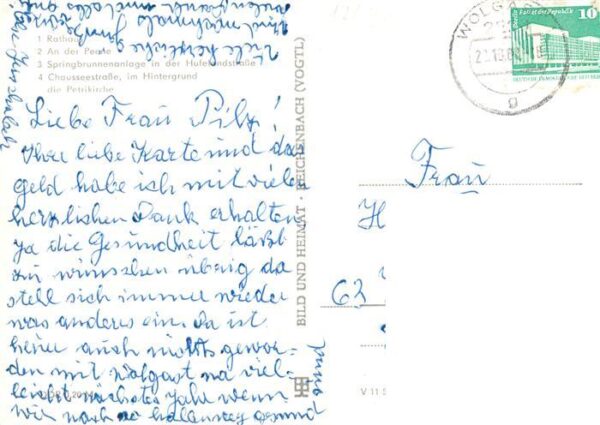 1 Rathaus
2 An der Peene
3 Springbrunnenanlage in der Hufelandstraße
4 Chausseestraße, im Hintergrund
die Petrikirche
Liebe Frau Pilz!
Ihre liebe Karte und das
geld habe ich mit vielen
herzlichen Dank erhalten
ja die Gesundheit läßt
zu wünschen übrig da
stell sich immer wieder
was anderes ein. Da ist
heuer auch nichts gewor-
den mit Wolgast na viel-
leicht nächstes Jahr wenn
wir noch so gesund
sind
Viele herzliche Grüße
und nochmals
BILD UND HEIMAT · REICHENBACH (VOGTL)
WOLGAST
g
Berlin Palast der Republik
10
DEUTSCHE DEMOKRATISCHE REPUBLIK
Frau
H
63
V 11